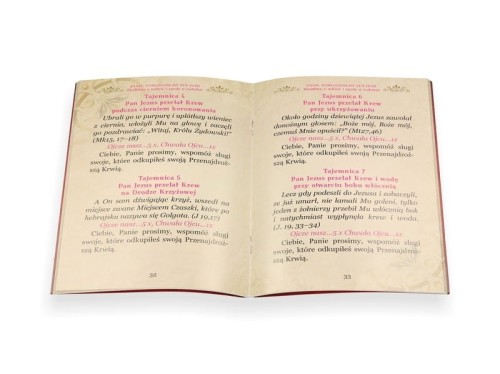 Tajemnica 4
Pan Jezus przelał Krew
podczas cierniem koronowania
Ubrali go w purpurę i uplótłszy wieniec
z ciernia, włożyli Mu na głowę i zaczęli
go pozdrawiać: „Witaj, Królu Żydowski!”
(Mk15, 17–18)
Ojcze nasz...5 x, Chwała Ojcu...1x
Ciebie, Panie prosimy, wspomóż sługi
swoje, które odkupiłeś swoją Przenajdroż-
szą Krwią.
Tajemnica 5
Pan Jezus przelał Krew
na Drodze Krzyżowej
A On sam dźwigając krzyż, wszedł na
miejsce zwane Miejscem Czaszki, które po
hebrajsku nazywa się Golgota. (J 19,17)
Ojcze nasz...5 x, Chwała Ojcu...1x
Ciebie, Panie prosimy, wspomóż sługi
swoje, które odkupiłeś swoją Przenajdroż-
szą Krwią.
32
Tajemnica 6
Pan Jezus przelał Krew
przy ukrzyżowaniu
Około godziny dziewiątej Jezus zawołał
donośnym głosem: „Boże mój, Boże mój,
czemuś Mnie opuścił?” (Mt27,46)
Ojcze nasz...5 x, Chwała Ojcu...1x
Ciebie, Panie prosimy, wspomóż sługi
swoje, które odkupiłeś swoją Przenajdroż-
szą Krwią.
Tajemnica 7
Pan Jezus przelał Krew i wodę
przy otwarciu boku włócznią
Lecz gdy podeszli do Jezusa i zobaczyli,
że już umarł, nie łamali Mu goleni, tylko
jeden z żołnierzy przebił Mu włócznią bok
i natychmiast wypłynęła krew i woda.
(J. 19, 33–34)
Ojcze nasz...5 x, Chwała Ojcu...1x
Ciebie, Panie prosimy, wspomóż sługi
swoje, które odkupiłeś swoją Przenajdroż-
szą Krwią.
33